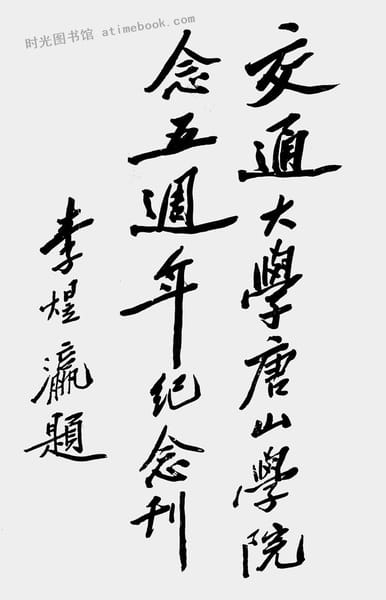 时光图书馆 atimebook.com
交通大學唐山學院
念五週年紀念刊
李煜瀛題